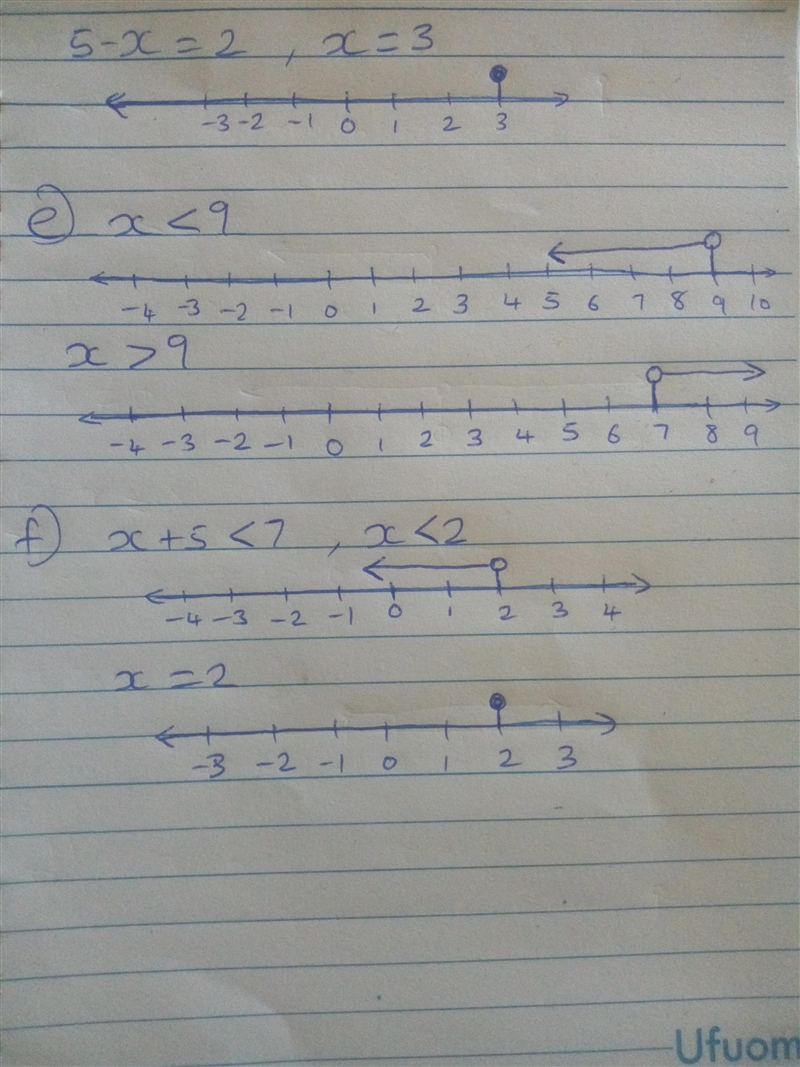 5-x=2 , x=3
-3 -2 -1 0 1 2 3
e) x<9
-4 -3 -2 -1 0 1 2 3 4 5 6 7 8 9 10
x>9
-4 -3 -2 -1 0 1 2 3 4 5 6 7 8 9
f) x+5<7 , x<2
-4 -3 -2 -1 0 1 2 3 4
x=2
-3 -2 -1 0 1 2 3
Ufuom